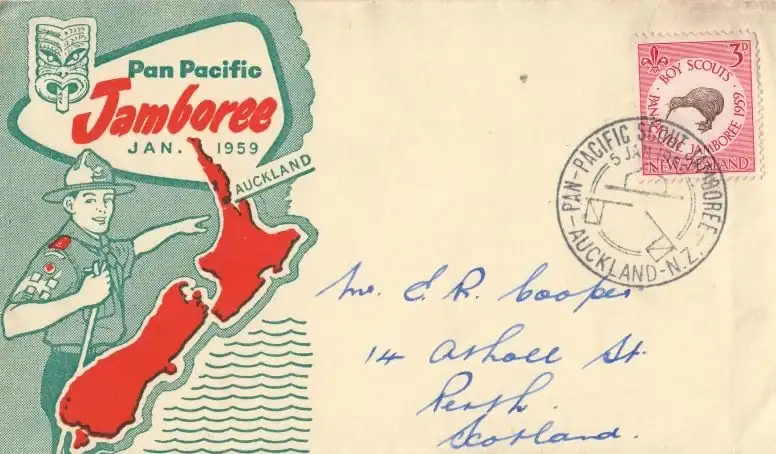 Pan Pacific
Jamboree
JAN. 1959
AUCKLAND
3D
BOY SCOUTS
PAN-PACIFIC JAMBOREE 1959
NEW ZEALAND
PAN-PACIFIC SCOUT JAMBOREE
5 JAN 1959
AUCKLAND-N.Z.
Mr. E. R. Cooper
14 Atholl St.
Perth.
Scotland.